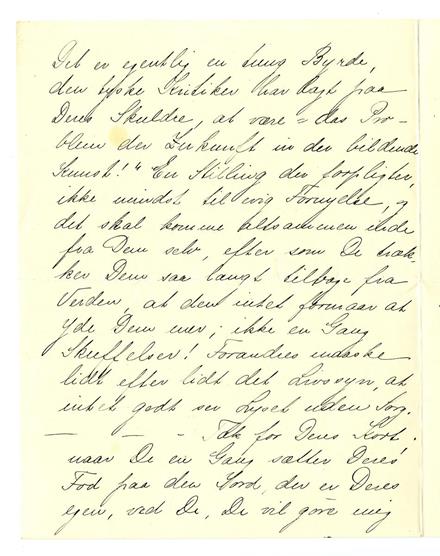 Det er egentlig en tung Byrde,
den tyske Kritiker har lagt paa
Deres Skuldre, at være = das Pro-
blem der Zukunft in der bildende
Kunst!" En Stilling der forpligter,
ikke mindst til evig Fornyelse, og
det skal komme altsammen inde
fra Dem selv, efter som De træk-
ker Dem saa langt tilbage fra
Verden, at den intet formaar at
yde Dem mer, ikke en Gang
Skuffelser! Forandres maaske
lidt efter lidt det Livssyn, at
intet godt ser Lyset uden Sorg.
- - - Tak for Deres Kort.
naar De en Gang sætter Deres
Fod paa den Jord, der er Deres
egen, ved De, De vil göre mig